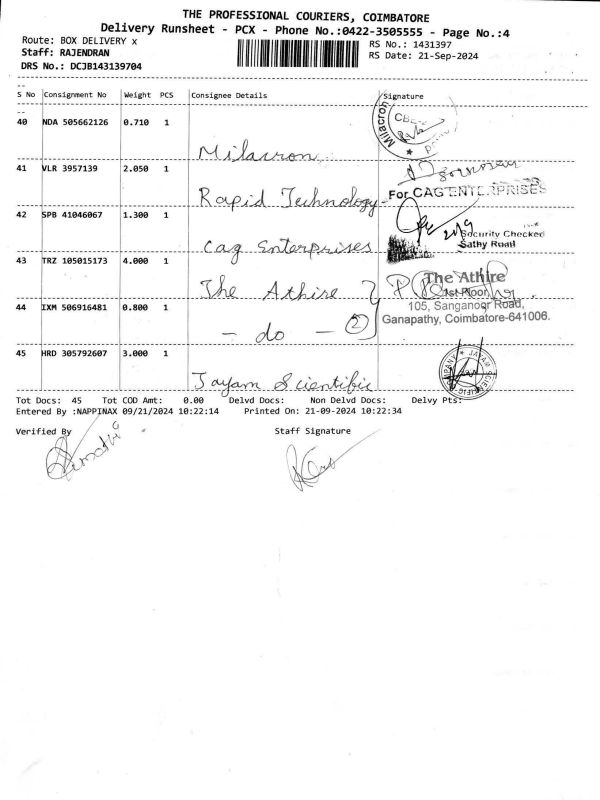 THE PROFESSIONAL COURIERS, COIMBATORE
Delivery Runsheet - PCX - Phone No.:0422-3505555 - Page No.:4
Route: BOX DELIVERY x
RS No.: 1431397
Staff: RAJENDRAN
RS Date: 21-Sep-2024
DRS No.: DCJB143139704
S No Consignment No Weight PCS Consignee Details Signature
40 NDA 505662126 0.710 1 Milacron
Milacron CBE
41 VLR 3957139 2.050 1 Rapid Technology
For CAG ENTERPRISES
42 SPB 41046067 1.300 1 Cag Enterprises
Security Checked
43 TRZ 105015173 4.000 1 The Athire
The Athire
1st Floor,
44 IXM 506916481 0.800 1 - do - 2
105, Sanganoor Road,
Ganapathy, Coimbatore-641006.
45 HRD 305792607 3.000 1 Jayam Scientific
JAYAM SCIENTIFIC COMPANY
Tot Docs: 45 Tot COD Amt: 0.00 Delvd Docs: Non Delvd Docs: Delvy Pts:
Entered By :NAPPINAX 09/21/2024 10:22:14 Printed On: 21-09-2024 10:22:34
Verified By Staff Signature